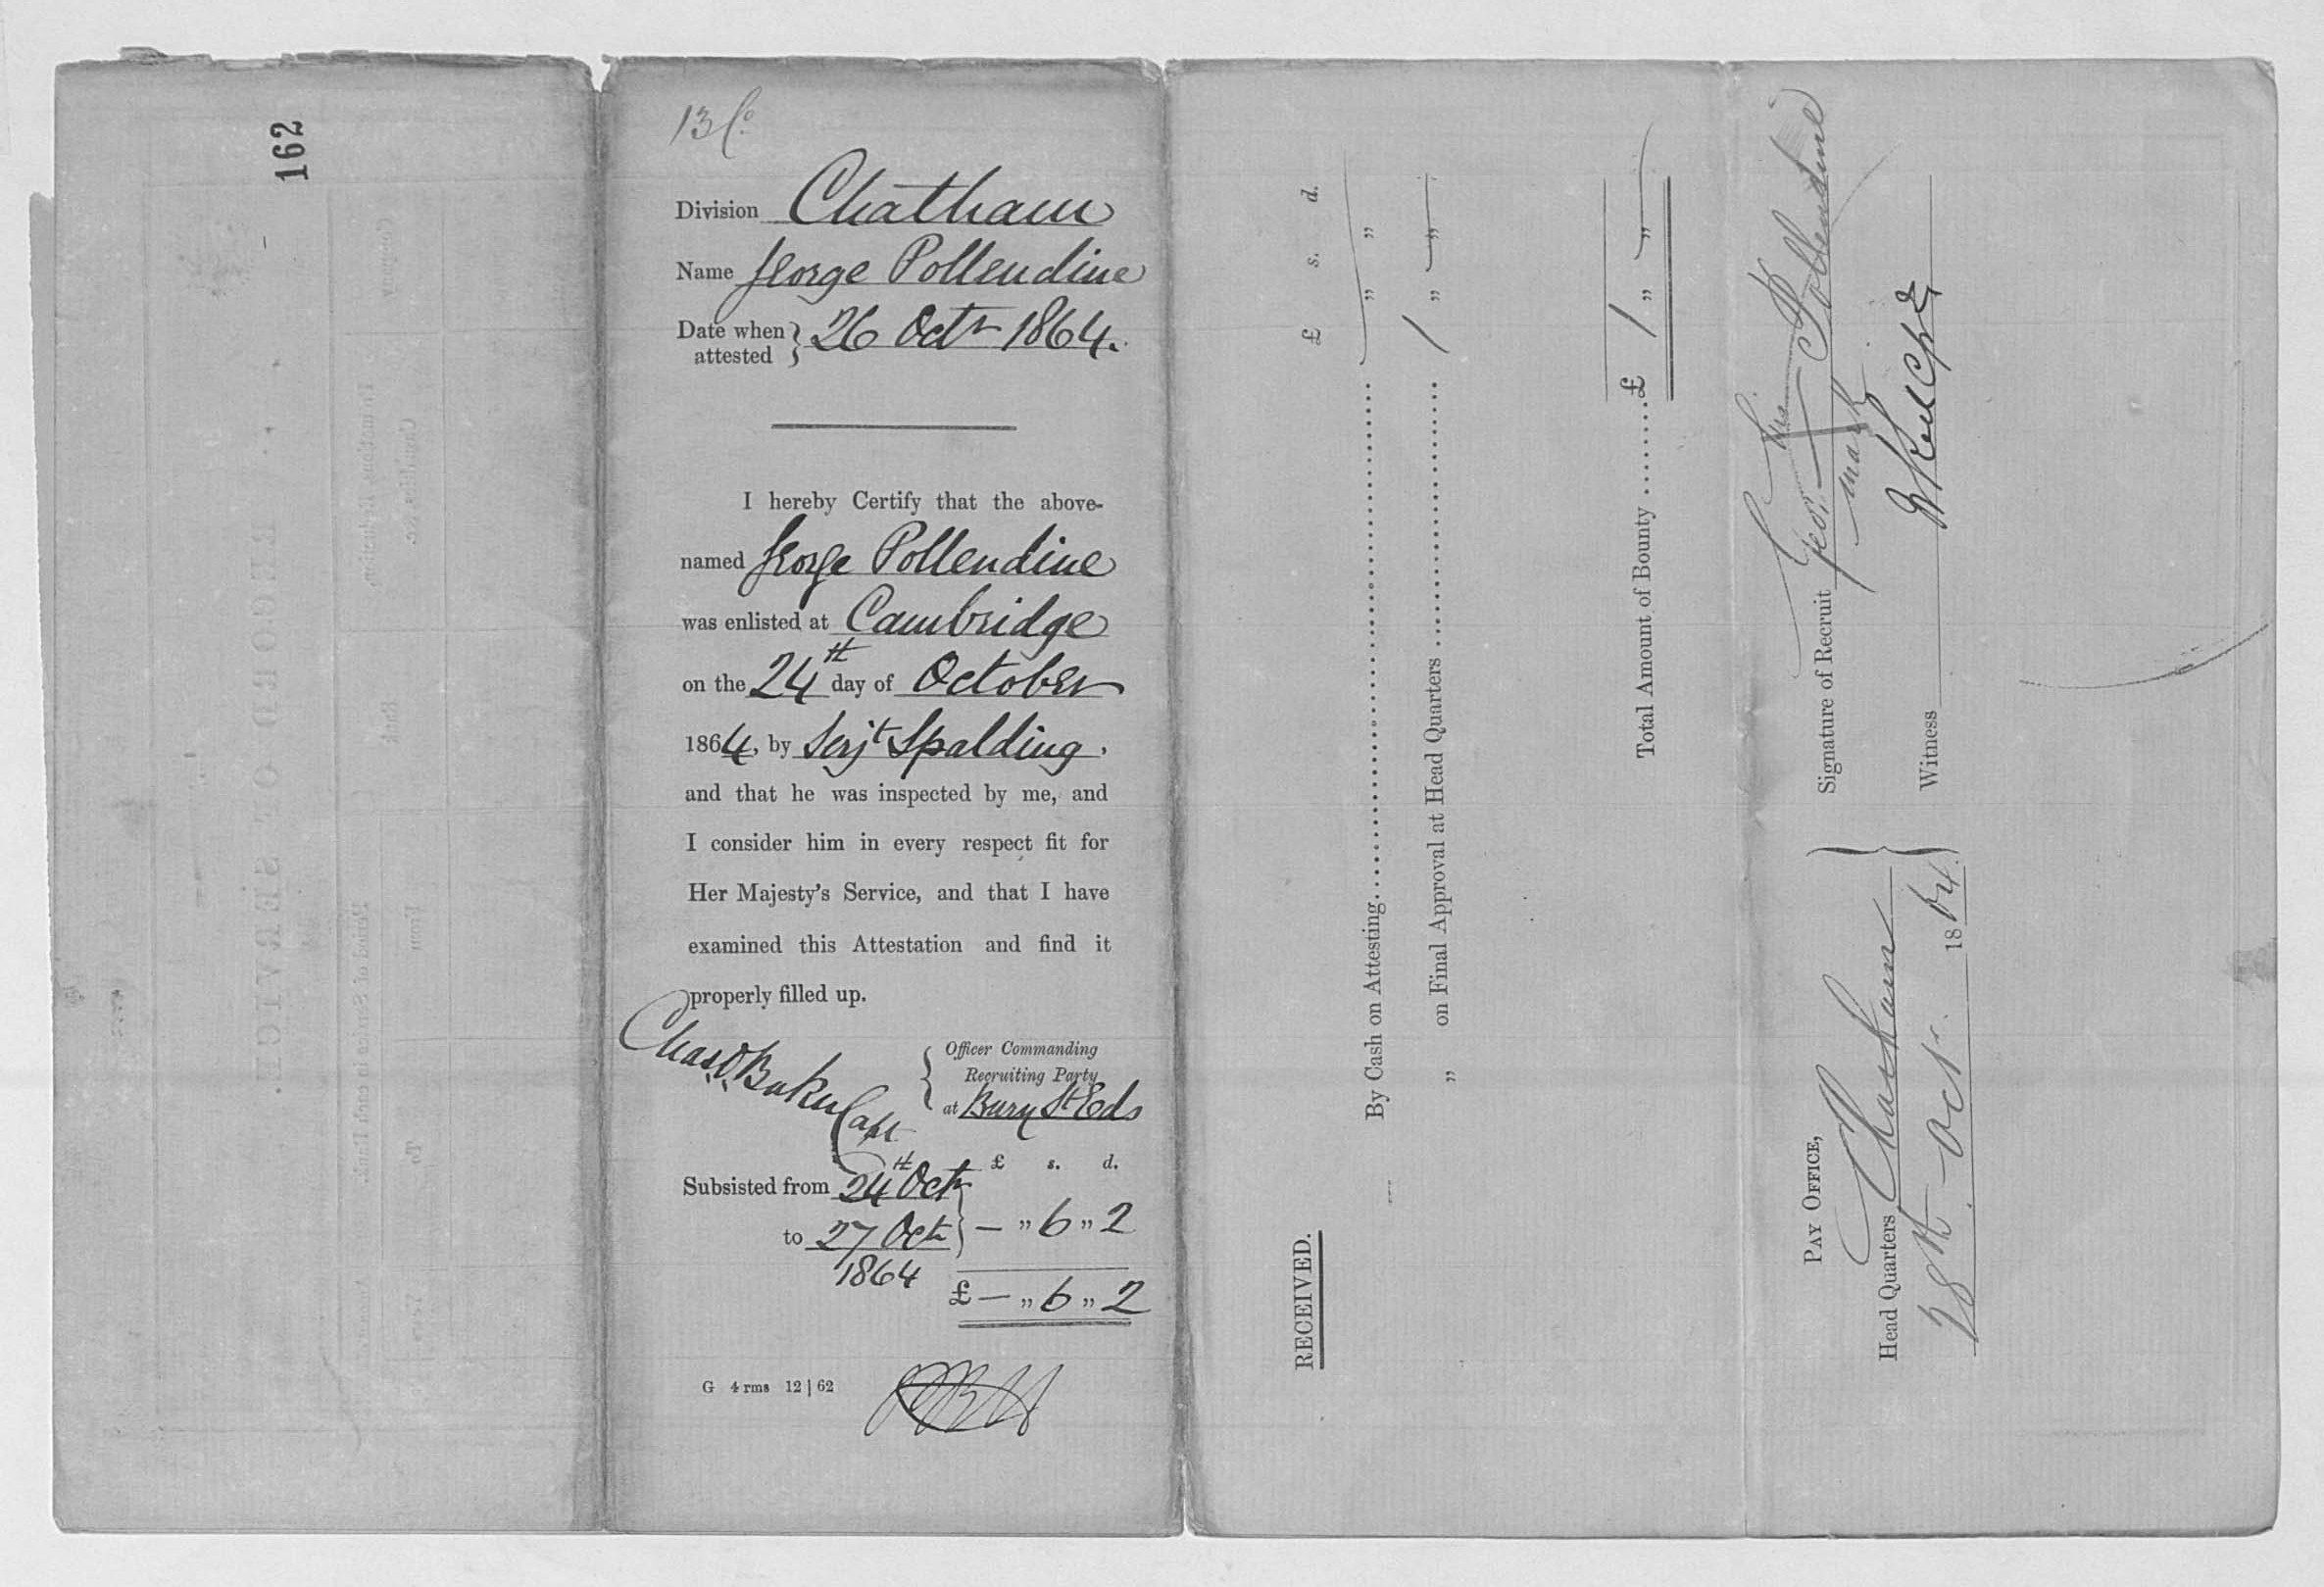 162
13 Co
Division Chatham
Name George Pollendine
Date when attested } 26 Octr 1864.
I hereby Certify that the above-
named George Pollendine
was enlisted at Cambridge
on the 24th day of October
1864, by Serjt Spalding.
and that he was inspected by me, and
I consider him in every respect fit for
Her Majesty's Service, and that I have
examined this Attestation and find it
properly filled up.
Chas Baker Capt
Officer Commanding
Recruiting Party
at Bury St Eds
£ s. d.
Subsisted from 24th Octr
to 27 Octr } — „ 6 „ 2
1864
£ — „ 6 „ 2
G 4 rms 12 | 62
RECEIVED.
£ s. d.
By Cash on Attesting „ „
„ on Final Approval at Head Quarters 1 „ „
Total Amount of Bounty £ 1 „ „
PAY OFFICE,
Head Quarters Chatham
28th Octr. 1864.
his
Signature of Recruit Geo. X Pollendine
mark
Witness